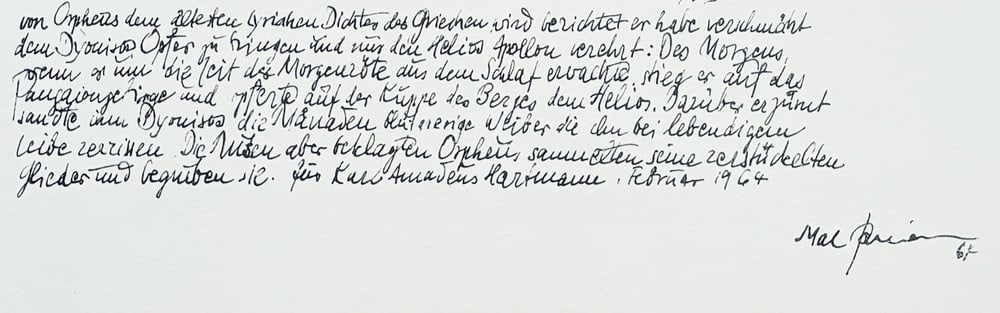 von Orpheus dem ältesten lyrischen Dichter der Griechen wird berichtet er habe verschmäht
dem Dyonisos Opfer zu bringen und nur den Helios Apollon verehrt: Des Morgens,
wenn er um die Zeit der Morgenröte aus dem Schlaf erwachte, stieg er auf das
Pangaiongebirge und opferte auf der Kuppe des Berges dem Helios. Darüber erzürnt
sandte ihm Dyonisos die Mänaden blutgierige Weiber die ihn bei lebendigem
Leibe zerrissen. Die Musen aber beklagten Orpheus sammelten seine zerstückelten
Glieder und begruben sie. für Karl Amadeus Hartmann. Februar 1964
Mac
64